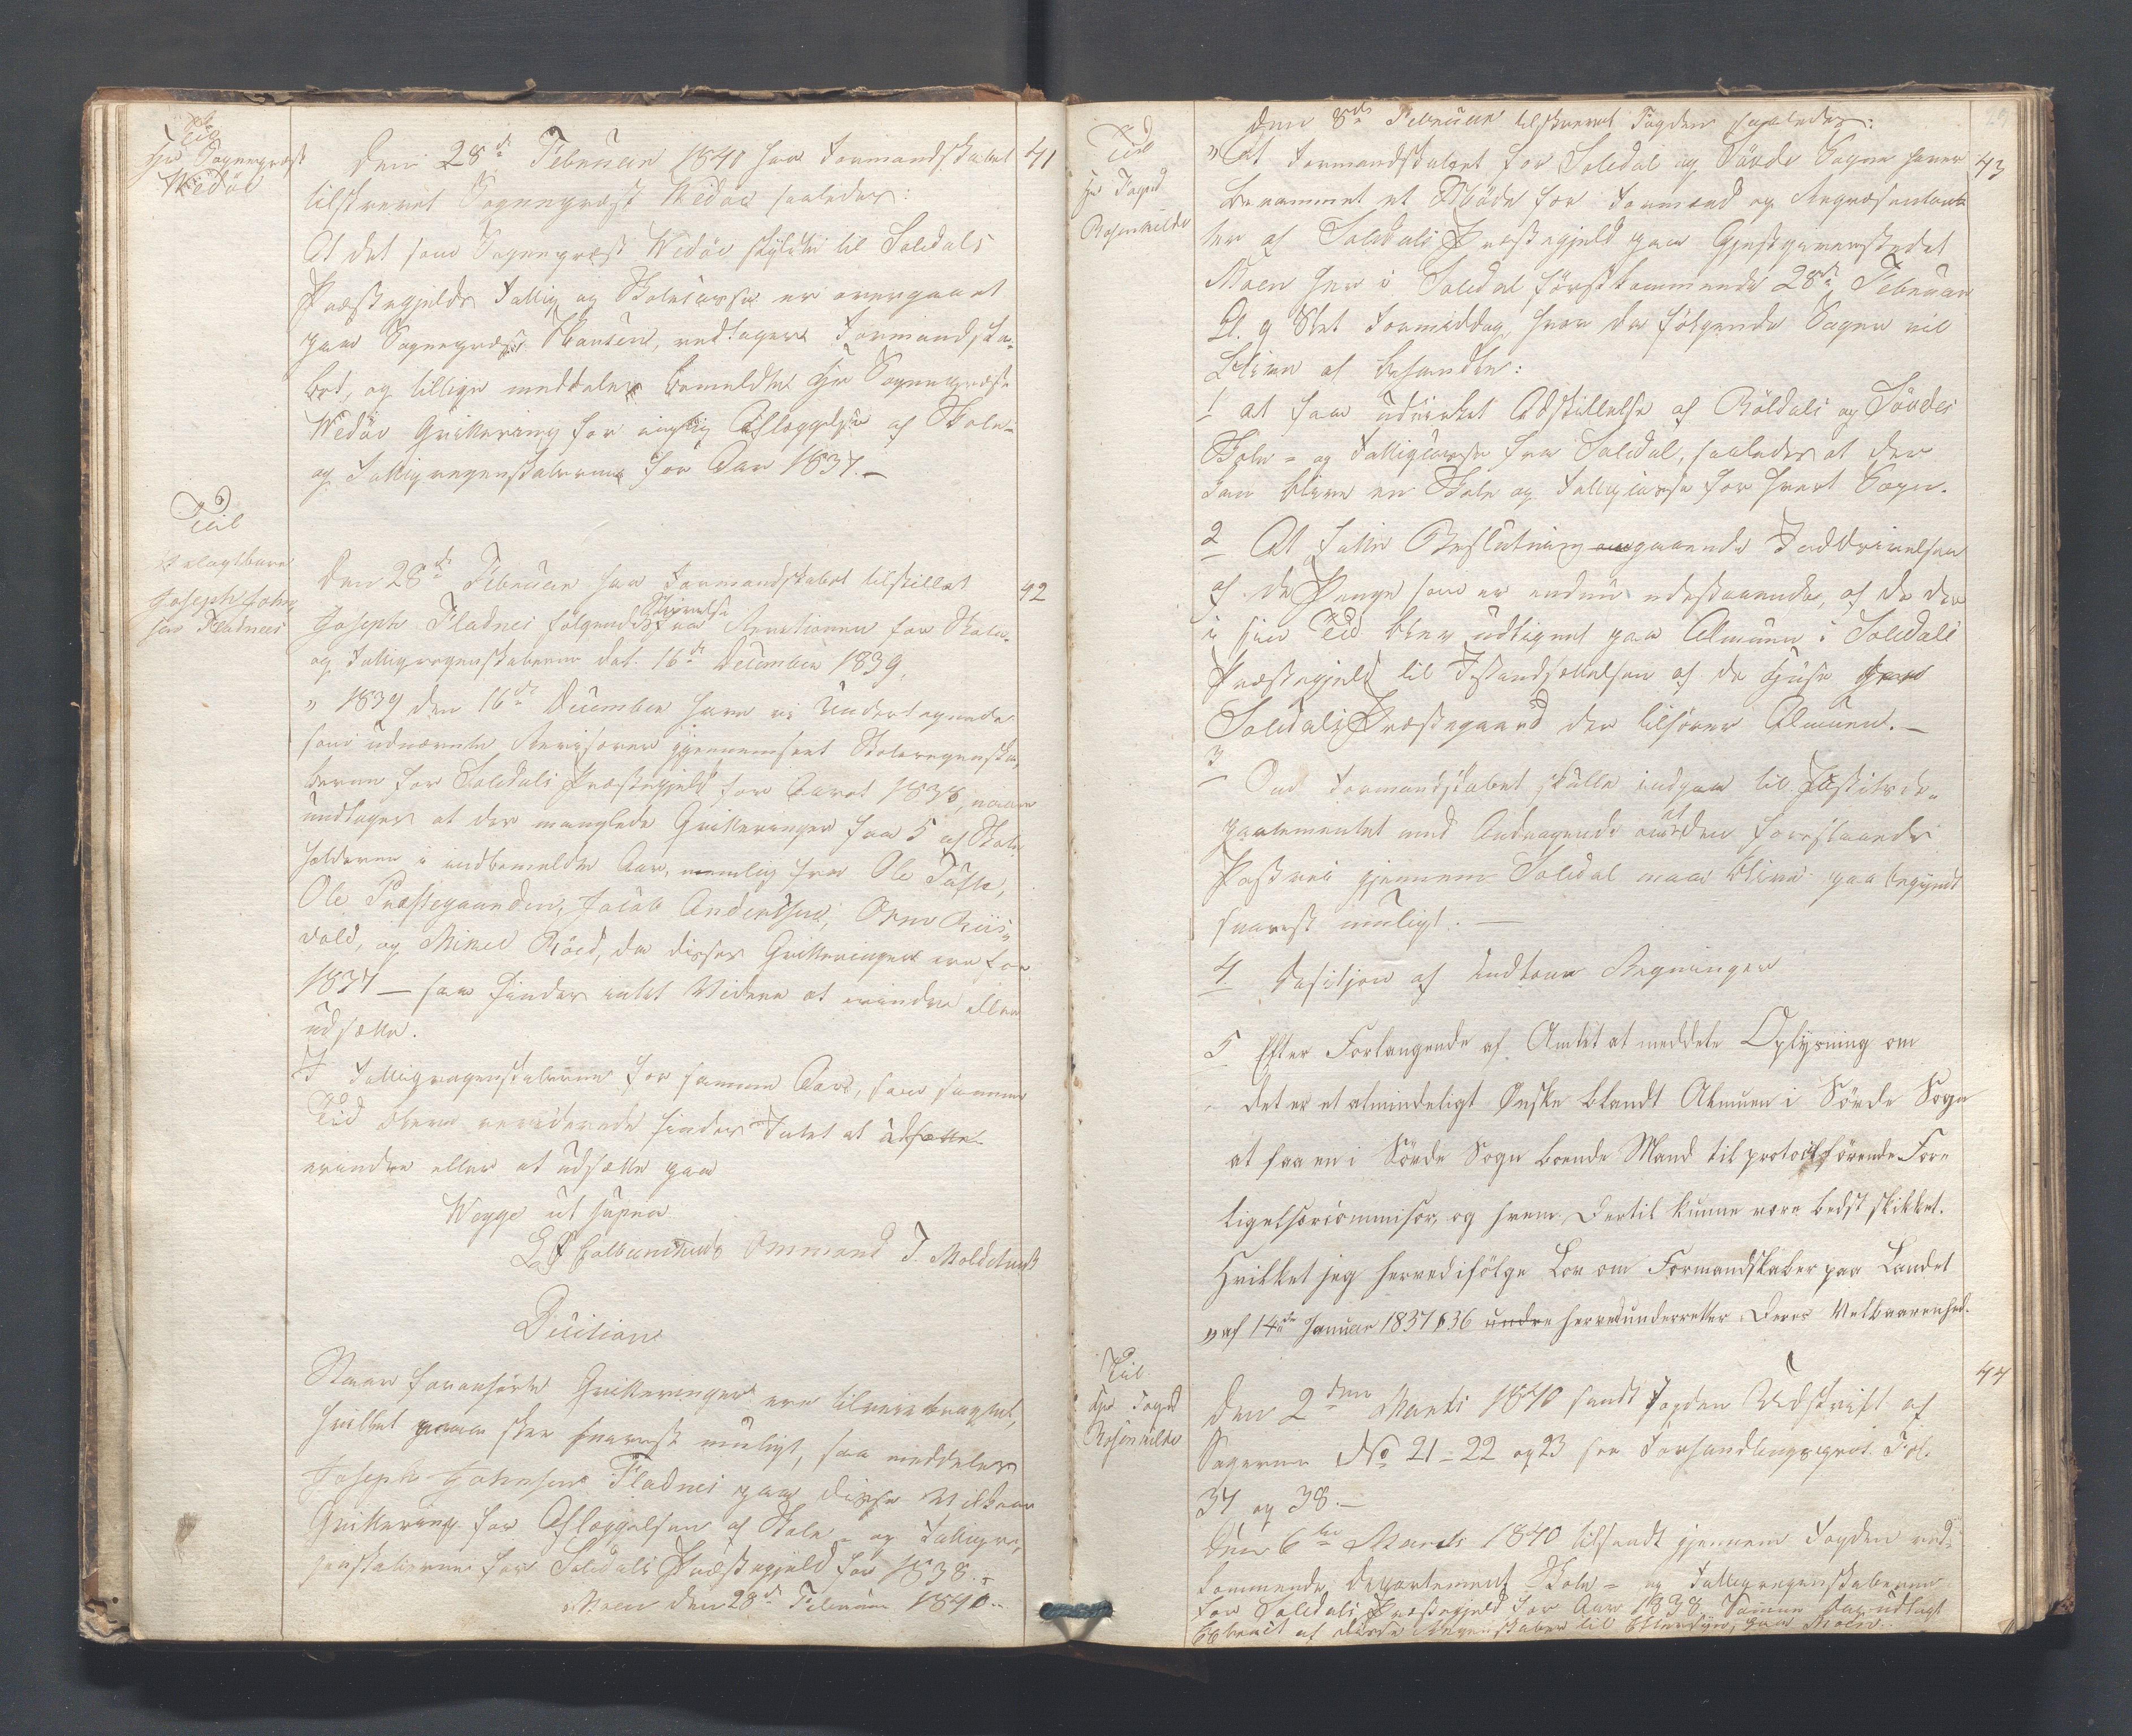 Til
Hr Sognepræst
Wedøe
Den 28de Februar 1840 har Formandskabet
tilskrevet Sognepræst Wedøe saaledes:
At det som Sognepræst Wedøe skyldte til Soledals
Præstegjelds Fattig og Skolecasse er overgaaet
paa Sognepræst Hansen, vedtages Formandska-
bet, og tillige meddeles bemeldte Hr Sognepræst
Wedøe Qvittering for rigtig Aflæggelse af Skole-
og Fattigregenskaberne for Aar 1837.-
41
Til
Velagtbare
Joseph John
sen Fladnes
Den 28de Februar har Formandskabet tilstillet
Joseph Fladnes følgende Skrivelse fra Revisionen for Skole-
og Fattigregenskaberne dat. 16de December 1839.
42
" 1839 den 16de December have vi Undertegnede
som udnævnte Revisorer gjennemseet Skoleregenska-
berne for Soledals Præstegjeld for Aaret 1838, naar
undtages at der manglede Qvitteringer fra 5 af Skole
holderne i indbemeldte Aar, nemlig fra Ole
Ole Præstegaarden, Jacob Andersen, Orm Riis-
vold, og Mikel Røed, da disses Qvitteringer ere for
1837 — saa findes intet Videre at erindre eller
udsætte.
I Fattigregenskaberne for samme Aar, som samme
Tid bleve reviderede findes Intet at udsætte
erindre eller at udsætte paa
Wegge ut supra
Ommond T. Moldetveit
Decition
Naar foranførte Qvitteringer ere tilveiebragte,
hvilket maa skee snarest muligt, saa meddeles
Joseph Johnsen Fladnes paa disse Vilkaar
Qvittering for Aflæggelsen af Skole- og Fattigre-
genskaberne for Soledals Præstegjeld for 1838.-
Moen den 28de Februar 1840.-
Til
Hr Foged
Rosenkilde
Den 8de Februar tilskrevet Fogden saaledes:
" At Formandskabet for Soledal og Søvde Sogne haver
43
berammet et Møde for Formænd og Repræsentan-
ter af Soledals Præstegjeld paa Gjestgiverstedet
Moen her i Soledal førstkommende 28de Februar
Kl. 9 Slet Formiddag, hvor da følgende Sager vil
blive at behandle:
1 at faa udvirket Adskillelse af Røldals og Søvdes
Skole- og Fattigcasse fra Soledal, saaledes at der
kan blive en Skole og Fattigcasse for hvert Sogn.
2 At fatte Beslutning angaaende Inddrivelsen
af de Penge som er endnu udestaaende, af de der
i sin Tid blev udlignet paa Almuen i Soledals
Præstegjeld til Istandsættelsen af de Huse paa
Soledals Præstegaard der tilhører Almuen.-
3
Om Formandskabet skulle indgaa til Justitsde-
partementet med Andragende om at den forestaaende
Postvei gjennem Soledal maa blive paabegyndt
snarest muligt.—
4 Desisjon af indkomne Regninger
5 Efter Forlangende af Amtet at meddele Oplysning om
det er et almindeligt Ønske blandt Almuen i Sövde Sogn
at faa en i Sövde Sogn boende Mand til protocolförende For-
ligelsescommisær, og hvem dertil kunne være bedst skikket.
Hvilket jeg herved ifölge Lov om Formandskaber paa Landet
" af 14de Januar 1837 § 36 undre herved underretter Deres Velbaarenhed.
Til
Hr Foged
Rosenkilde
44
Den 2den Marts 1840 sendt Fogden Udskrift af
Sagerne No 21-22 og 23 see Forhandlingsprot. Fol.
37 og 38.—
Den 6te Marts 1840 tilsendt gjennem Fogden ved-
kommende Departement Skole- og Fattigregenskaberne
for Soledals Præstegjeld for Aar 1838. Samme Dag udlagt
af disse Regenskaber til Eftersyn, paa Moen.